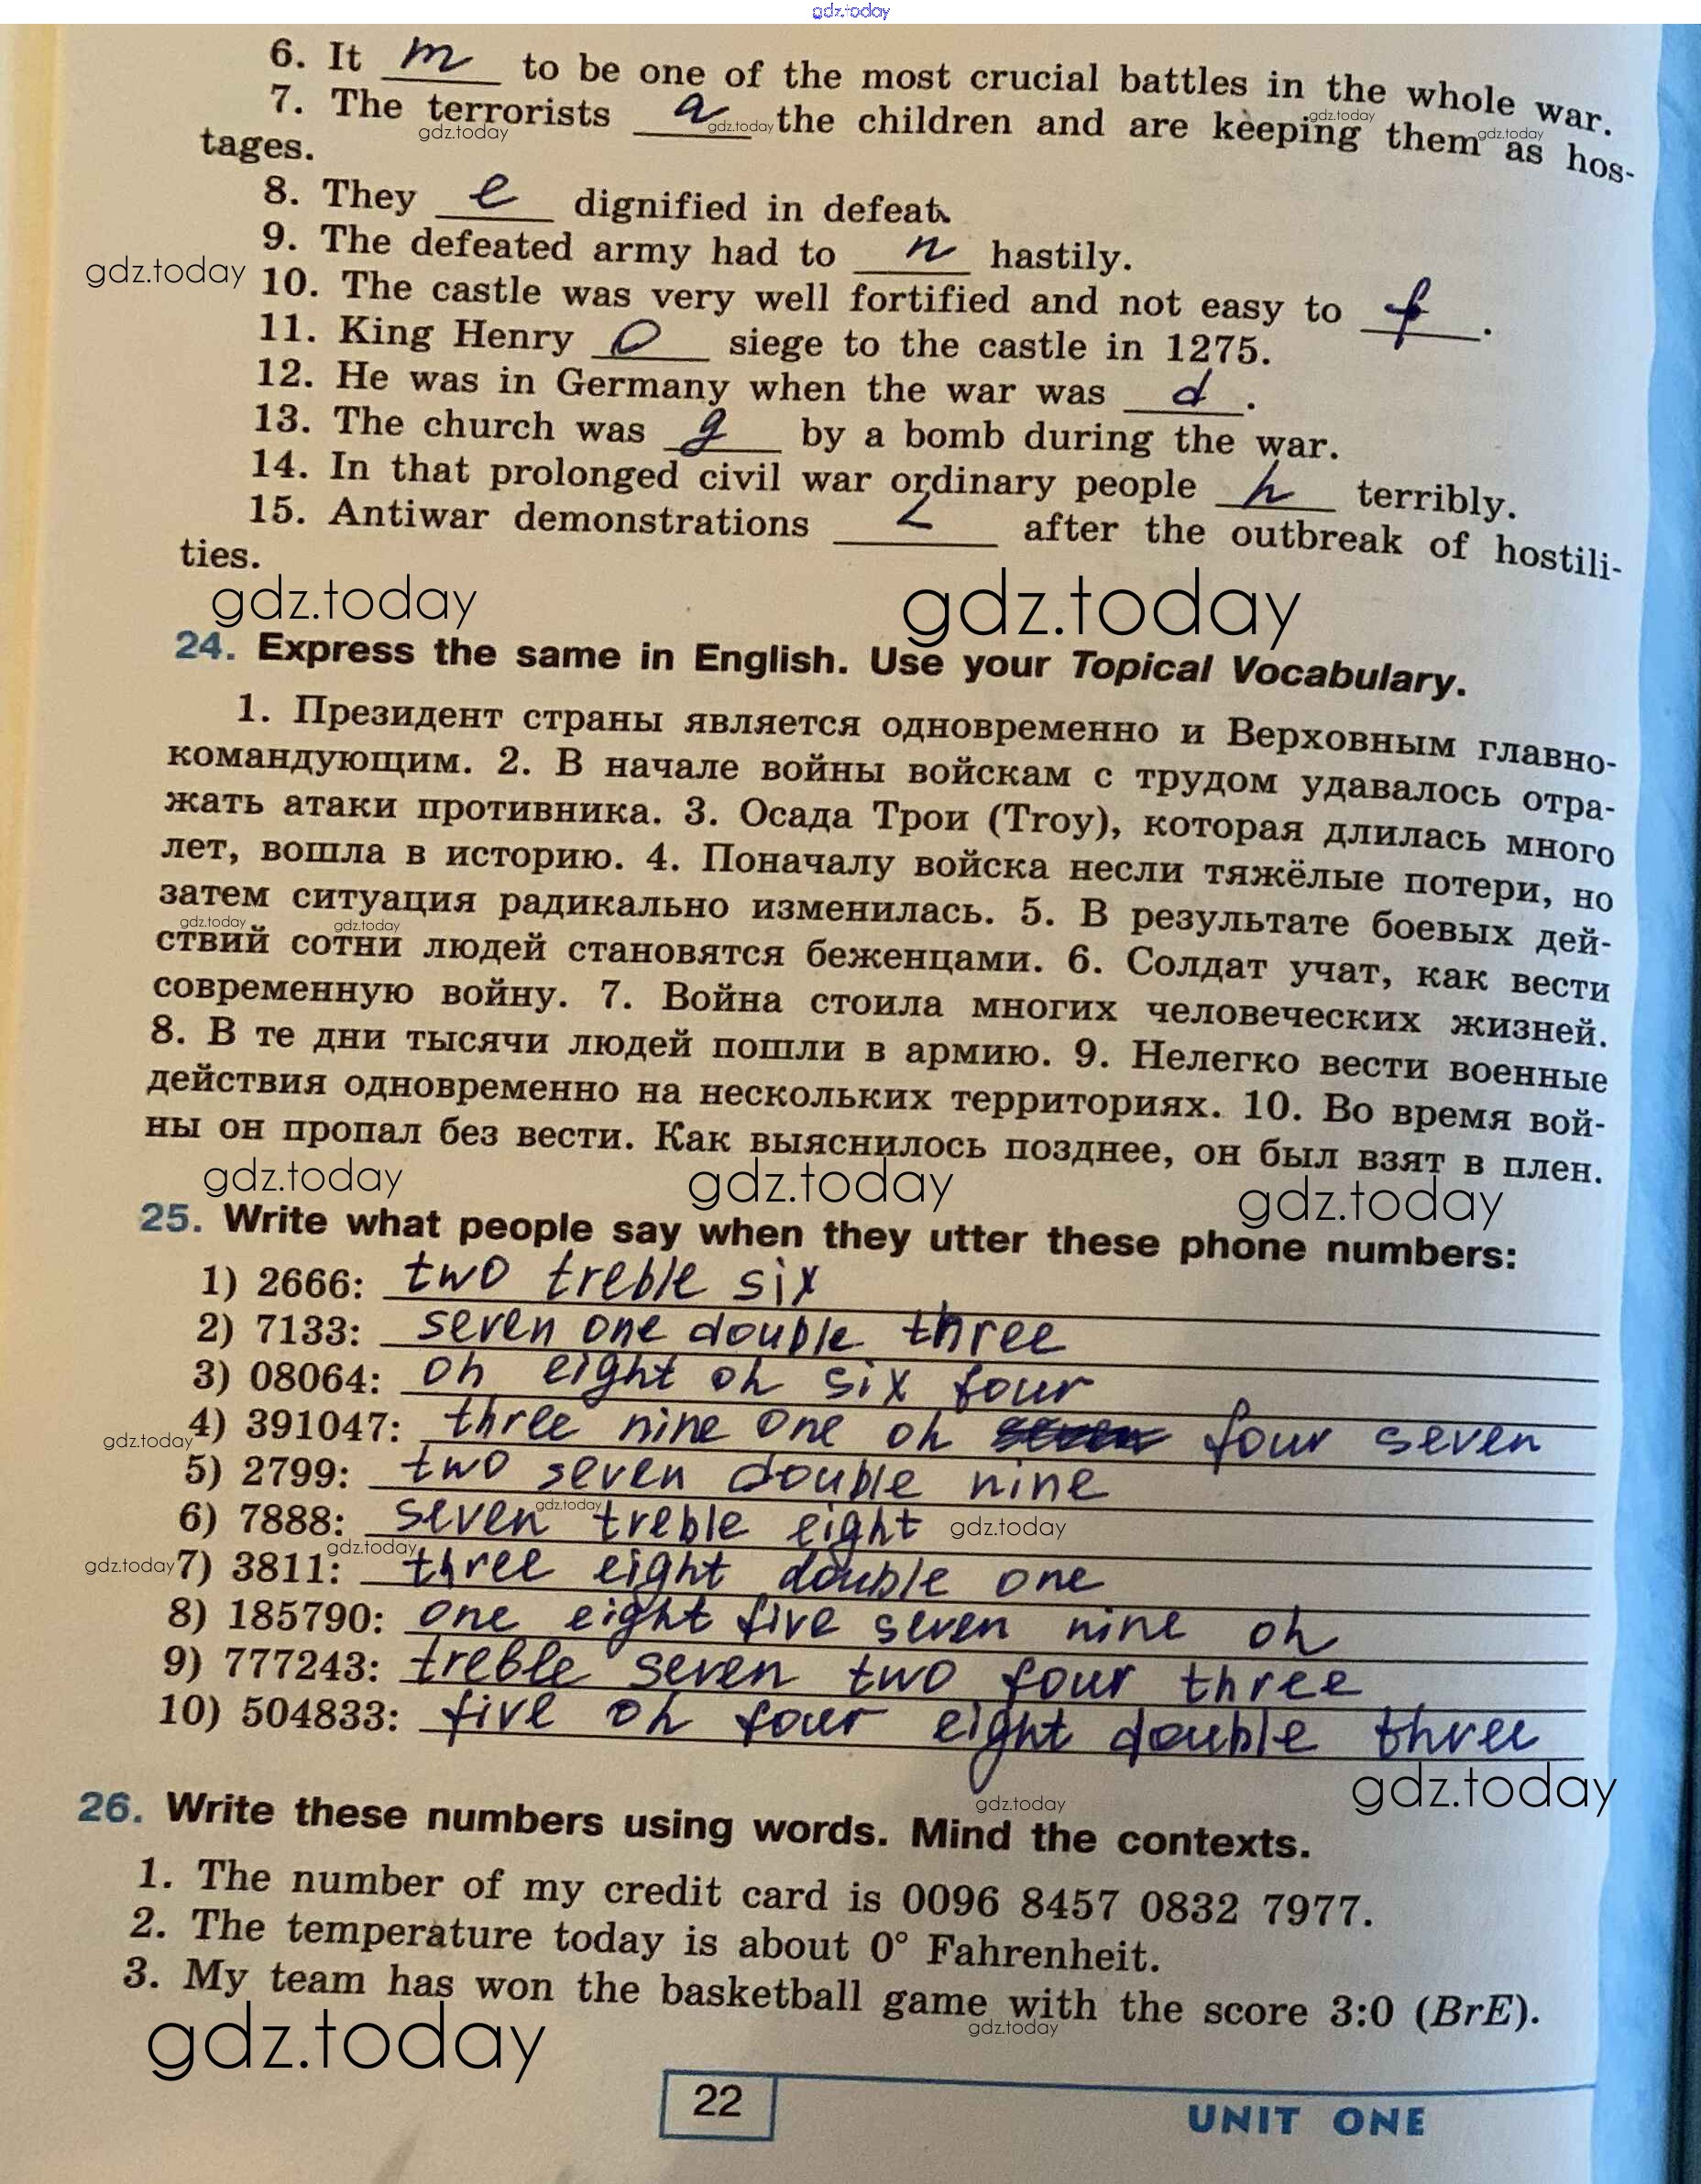 gdz.today
6. It m to be one of the most crucial battles in the whole war.
7. The terrorists a the children and are keeping them as hos-
gdz.today gdz.today gdz.today gdz.today
tages.
8. They e dignified in defeat.
9. The defeated army had to n hastily.
gdz.today
10. The castle was very well fortified and not easy to f.
11. King Henry o siege to the castle in 1275.
12. He was in Germany when the war was d.
13. The church was g by a bomb during the war.
14. In that prolonged civil war ordinary people h terribly.
15. Antiwar demonstrations after the outbreak of hostili-
ties.
gdz.today gdz.today
24. Express the same in English. Use your Topical Vocabulary.
1. Президент страны является одновременно и Верховным главно-
командующим. 2. В начале войны войскам с трудом удавалось отра-
жать атаки противника. 3. Осада Трои (Troy), которая длилась много
лет, вошла в историю. 4. Поначалу войска несли тяжёлые потери, но
затем ситуация радикально изменилась. 5. В результате боевых дей-
gdz.today gdz.today
ствий сотни людей становятся беженцами. 6. Солдат учат, как вести
современную войну. 7. Война стоила многих человеческих жизней.
8. В те дни тысячи людей пошли в армию. 9. Нелегко вести военные
действия одновременно на нескольких территориях. 10. Во время вой-
ны он пропал без вести. Как выяснилось позднее, он был взят в плен.
gdz.today gdz.today gdz.today
25. Write what people say when they utter these phone numbers:
1) 2666: two treble six
2) 7133: seven one double three
3) 08064: oh eight oh six four
4) 391047: three nine one oh four seven
gdz.today
5) 2799: two seven double nine
gdz.today
6) 7888: seven treble eight gdz.today
gdz.today
gdz.today
7) 3811: three eight double one
8) 185790: one eight five seven nine oh
9) 777243: treble seven two four three
10) 504833: five oh four eight double three
gdz.today
gdz.today
26. Write these numbers using words. Mind the contexts.
1. The number of my credit card is 0096 8457 0832 7977.
2. The temperature today is about 0° Fahrenheit.
3. My team has won the basketball game with the score 3:0 (BrE).
gdz.today gdz.today
22
UNIT ONE